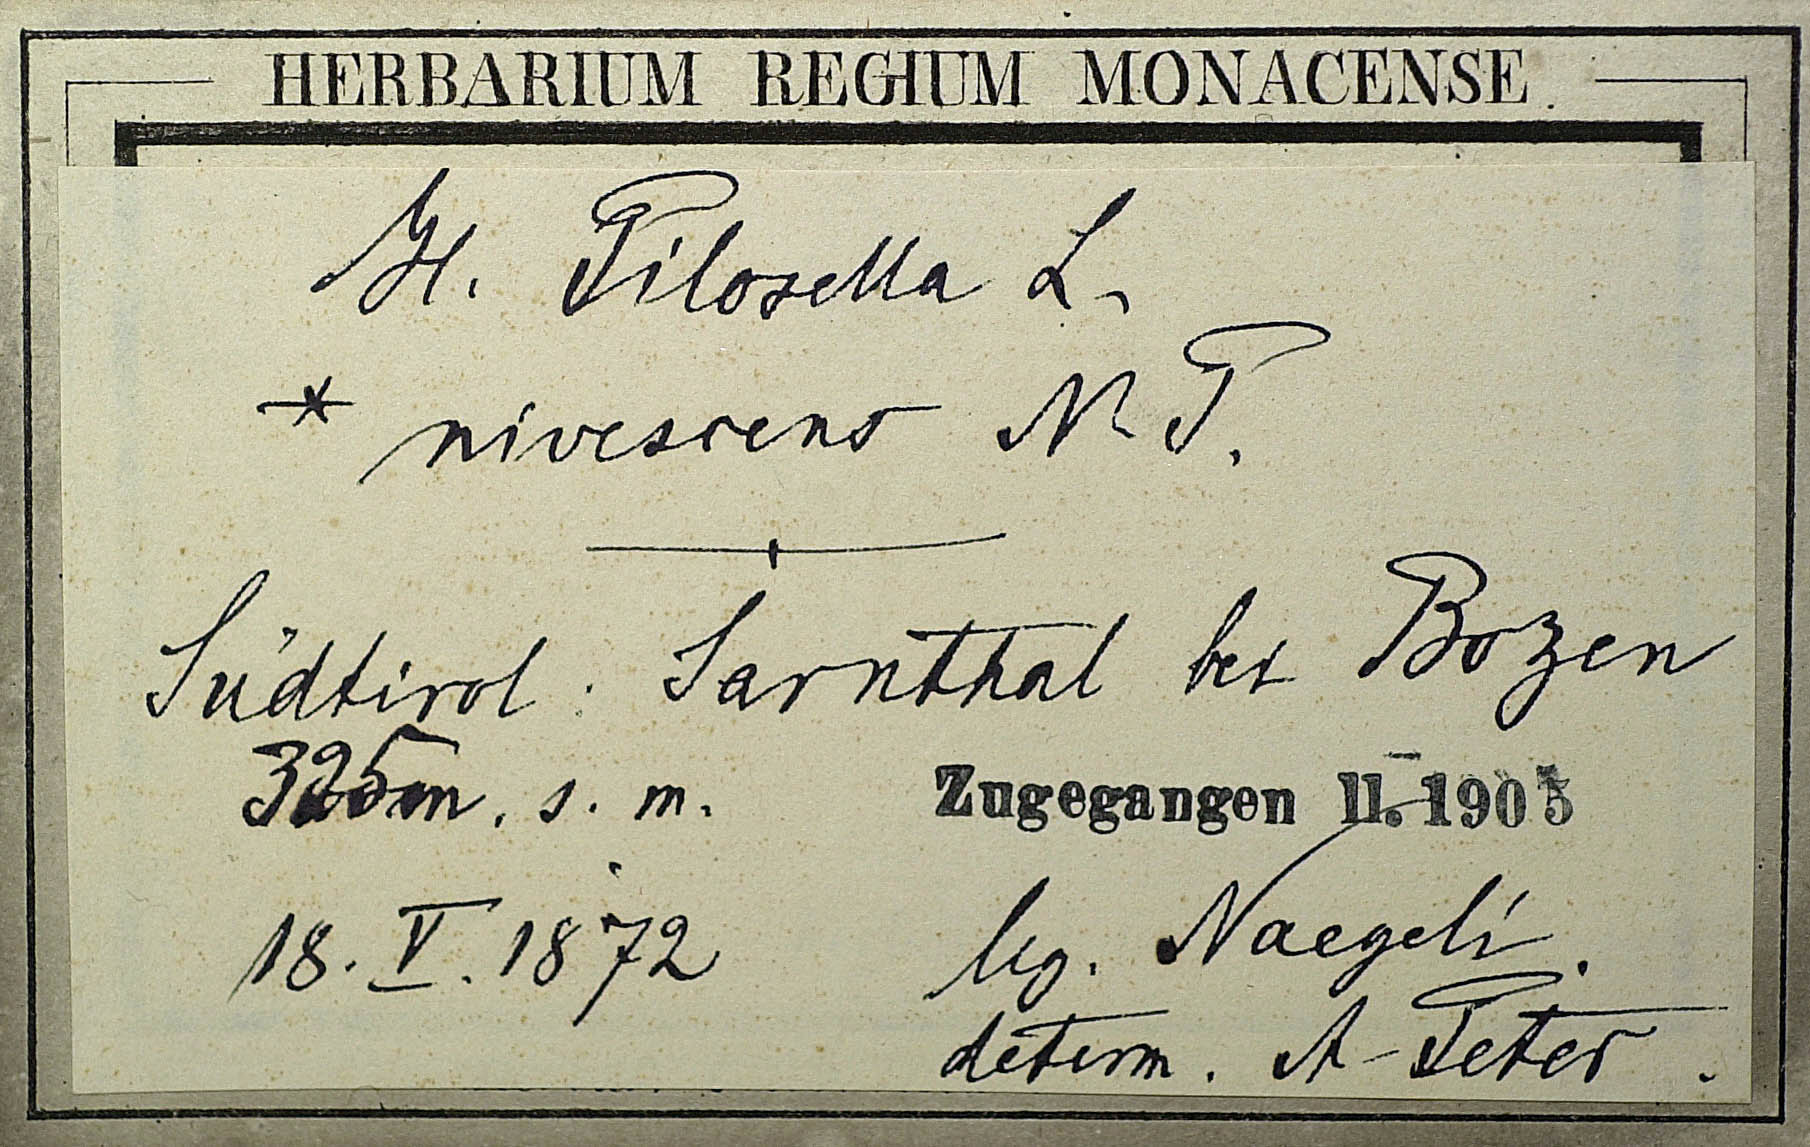 HERBARIUM REGIUM MONACENSE.
H. Pilosella L.
* nivescens N. P.
Südtirol: Sarnthal bei Bozen
325m. s. m.
Zugegangen II. 1905
18. V. 1872
leg. Naegeli.
determ. A. Peter.